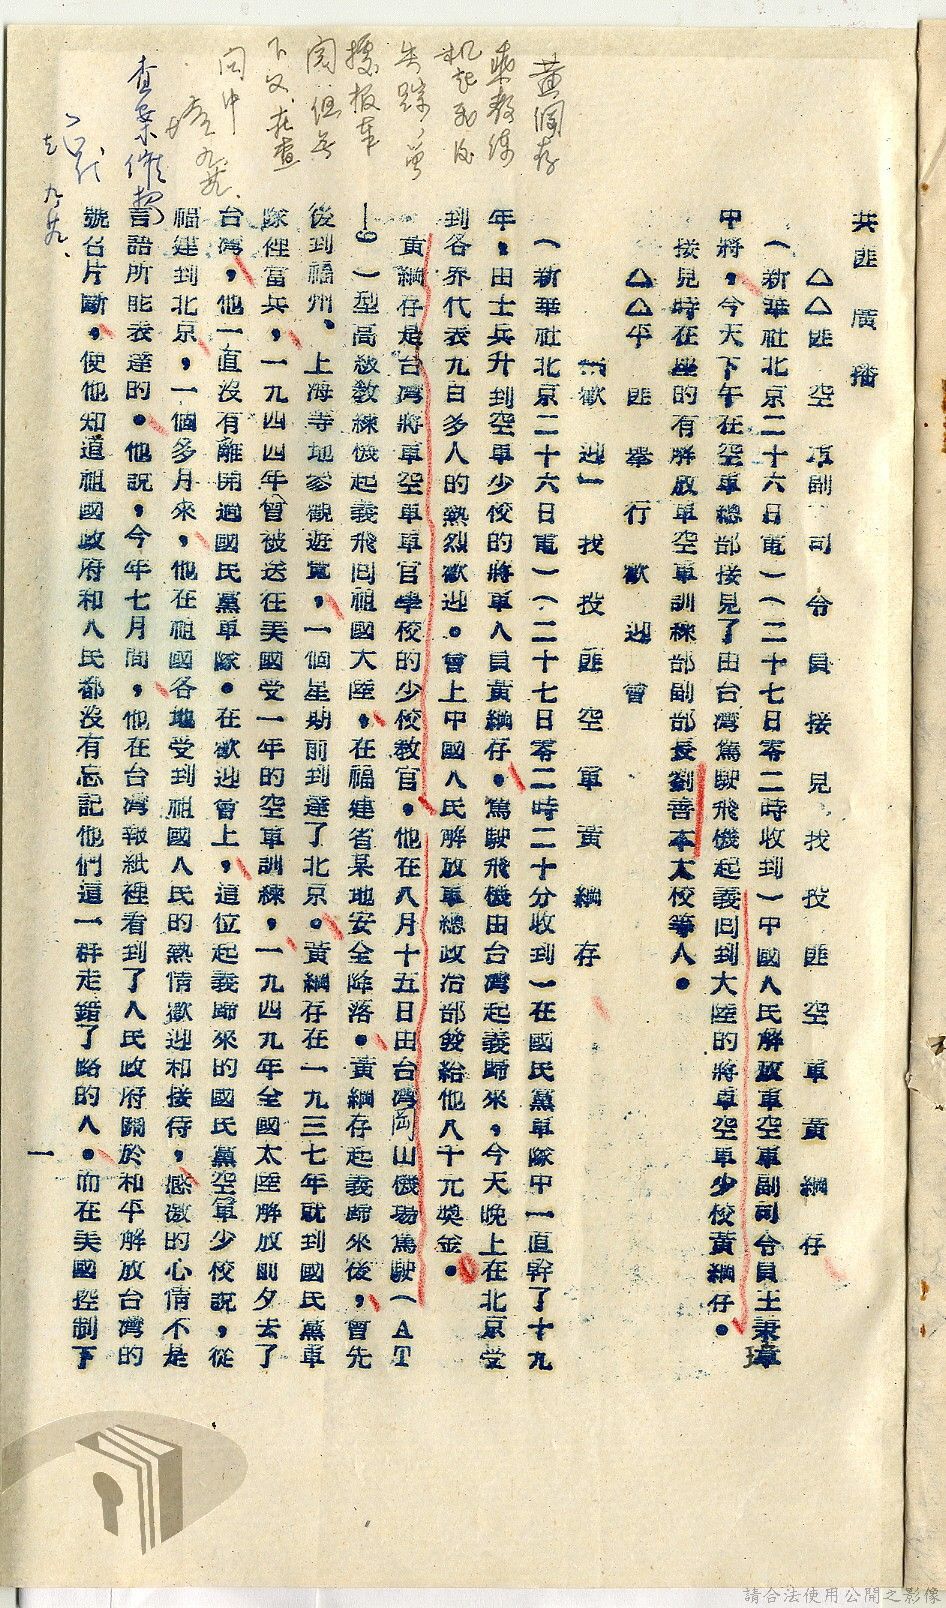 共匪廣播
△△匪空軍副司令員接見我投匪空軍黃綱存
（新華社北京二十六日電）（二十七日零二時收到）中國人民解放軍空軍副司令員王秉璋
中將，今天下午在空軍總部接見了由台灣駕駛飛機起義回到大陸的蔣軍空軍少校黃綱存。
接見時在座的有解放軍空軍訓練部副部長劉善本大校等人。
△△平匪舉行歡迎會
「歡迎」我投匪空軍黃綱存
（新華社北京二十六日電）（二十七日零二時二十分收到）在國民黨軍隊中一直幹了十九
年，由士兵升到空軍少校的蔣軍人員黃綱存，駕駛飛機由台灣起義歸來，今天晚上在北京受
到各界代表九百多人的熱烈歡迎。會上中國人民解放軍總政治部發給他八千元獎金。
黃綱存是台灣蔣軍空軍軍官學校的少校教官，他在八月十五日由台灣岡山機場駕駛（AT
一6）型高級教練機起義飛回祖國大陸，在福建省某地安全降落。黃綱存起義歸來後，曾先
後到福州、上海等地參觀遊覽，一個星期前到達了北京。黃綱存在一九三七年就到國民黨軍
隊裡當兵，一九四四年曾被送在美國受一年的空軍訓練，一九四九年全國大陸解放前夕去了
台灣，他一直沒有離開過國民黨軍隊。在歡迎會上，這位起義歸來的國民黨空軍少校說，從
福建到北京，一個多月來，他在祖國各地受到祖國人民的熱情歡迎和接待，感激的心情不是
言語所能表達的。他說，今年七月間，他在台灣報紙裡看到了人民政府關於和平解放台灣的
號召片斷，使他知道祖國政府和人民都沒有忘記他們這一群走錯了路的人。而在美國控制下
一
璋
黃綱存
乘教練
機起飛後
失踪，曾
據報在
查案
九、廿九、
請合法使用公開之影像